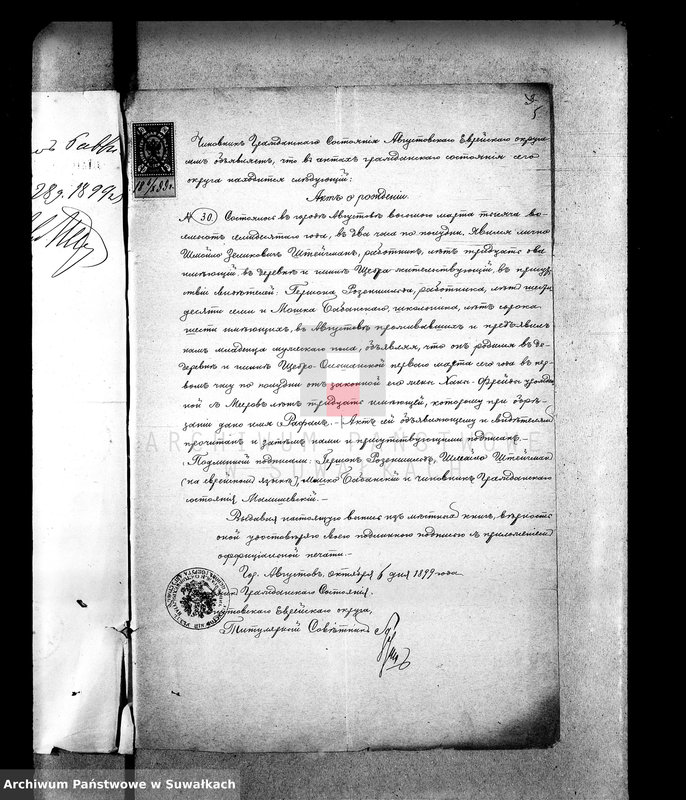 5
Чиновникъ Гражданскаго Состоянія Августовскаго Еврейскаго округа
симъ объявляетъ, что въ актахъ гражданскаго состоянія сего
округа находится слѣдующій:
Актъ о рожденіи.
№ 30. Состоялся въ городѣ Августовѣ восьмого марта тысяча во-
семьсотъ семидесятаго года, въ два часа по полудни. Явился лично
Шмойло Зеликовичъ Штейнманъ, работникъ, лѣтъ тридцать два
имѣющій, въ деревнѣ и гминѣ Щебра жительствующій, въ присут-
ствіи свидѣтелей: Гершона Розенцвейга, работника, лѣтъ шесть-
десятъ семи и Мошка Бабанскаго, школьника, лѣтъ сорокъ
шести имѣющихъ, въ Августовѣ проживающихъ и предъявилъ
намъ младенца мужескаго пола, объявляя, что онъ родился въ де-
деревнѣ и гминѣ Щебро-Ольшанской перваго марта сего года въ пер-
вомъ часу по полудни отъ законной его жены Ханы-Фрейды урожден-
ной съ Мееровъ лѣтъ тридцать имѣющей, которому при обрѣ-
заніи дано имя Рафалъ. - Актъ сей объявляющему и свидѣтелямъ
прочитанъ и затѣмъ нами и присутствующими подписанъ. -
Подлинной подписали: Гершонъ Розенцвейгъ, Шмойло Штейнманъ
(на еврейскомъ языкѣ), Мошко Бабанскій и чиновникъ Гражданскаго
состоянія Малишевскій. -
Выдавая настоящую выпись изъ мѣстныхъ книгъ, вѣрность
оной удостовѣряю своею подлинною подписью съ приложеніемъ
оффиціальной печати. -
Гор. Августовъ, октября 6 дня 1899 года.
Гражданскаго Состоянія
Августовскаго Еврейскаго округа,
Титулярный Совѣтникъ
28 1899
ARCHIWUM PAŃSTWOWE
W SUWAŁKACH
Archiwum Państwowe w Suwałkach